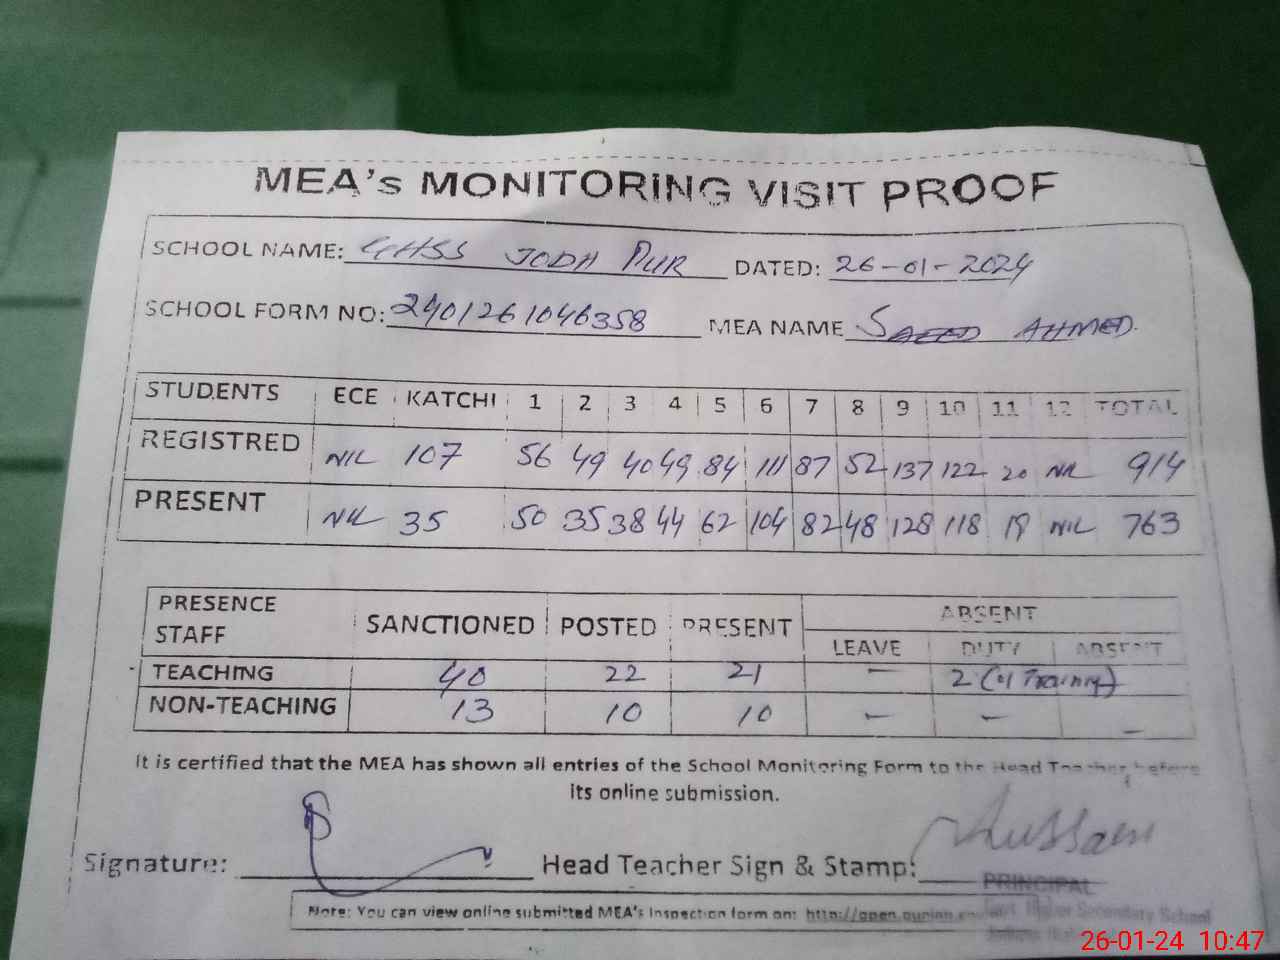 MEA's MONITORING VISIT PROOF
SCHOOL NAME: GHSS JODH PUR DATED: 26-01-2024
SCHOOL FORM NO: 2401261046358 MEA NAME SAEED AHMED.
STUDENTS ECE KATCHI 1 2 3 4 5 6 7 8 9 10 11 12 TOTAL
REGISTRED NIL 107 56 49 40 49 84 111 87 52 137 122 20 NIL 914
PRESENT NIL 35 50 35 38 44 62 104 82 48 128 118 19 NIL 763
PRESENCE STAFF SANCTIONED POSTED PRESENT ABSENT
LEAVE DUTY ABSENT
TEACHING 40 22 21 — 2 (Training)
NON-TEACHING 13 10 10 — — —
It is certified that the MEA has shown all entries of the School Monitoring Form to the Head Teacher before
its online submission.
Signature: Head Teacher Sign & Stamp: Hussain
PRINCIPAL
Note: You can view online submitted MEA's Inspection form on: http://open.punjab
Govt. Higher Secondary School
26-01-24 10:47